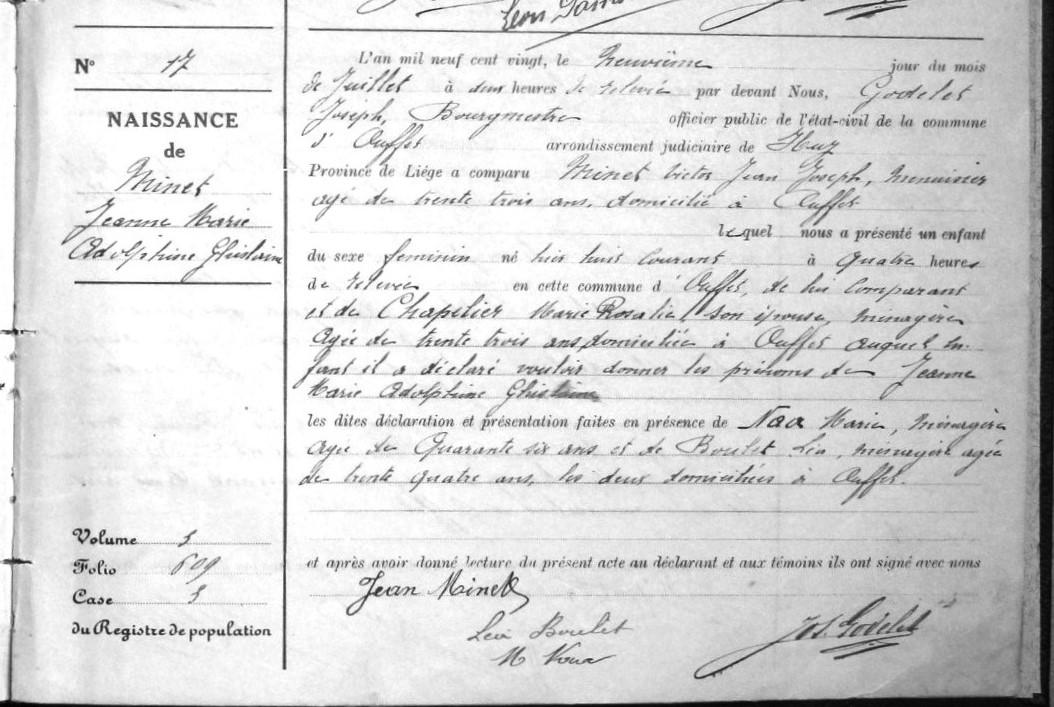 Léon
N° 17
NAISSANCE
de
Minet
Jeanne Marie
Adolphine Ghislaine
L'an mil neuf cent vingt, le neuvième jour du mois
de Juillet à deux heures de relevée par devant Nous, Godelet
Joseph, Bourgmestre officier public de l'état-civil de la commune
d'Ouffet arrondissement judiciaire de Huy
Province de Liége a comparu Minet Victor Jean Joseph, menuisier
agé de trente trois ans, domicilié à Ouffet
lequel nous a présenté un enfant
du sexe feminin né hier huit courant à quatre heures
de relevée en cette commune d'Ouffet, de lui comparant
et de Chapelier Marie Rosalie, son épouse, ménagère
agée de trente trois ans, domiciliée à Ouffet auquel en-
fant il a déclaré vouloir donner les prénoms de Jeanne
Marie Adolphine Ghislaine
les dites déclaration et présentation faites en présence de Marie, ménagère
agée de quarante six ans et de Boulet Léa, ménagère agée
de trente quatre ans, les deux domiciliées à Ouffet.
Volume 5
Folio 609
Case 5
du Registre de population
et après avoir donné lecture du présent acte au déclarant et aux témoins ils ont signé avec nous
Jean Minet
Léa Boulet
M
Jos. Godelet